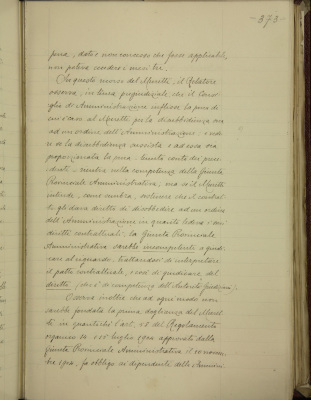 -373-
pena, dato e non concesso che fosse applicabile,
non poteva rendere i suoi ter.
In questo ricorso del Moretti, il Relatore
osserva, in linea pregiudiziale che il Consi-
glio di Amministrazione inflisse la pena di
al Moretti per la disobbedienza
ad un ordine dell'Amministrazione: e vede-
re se la disobbedienza sussista e ad essa sia
proporzionata la pena - tenuto conto dei prece-
denti, rientra nella competenza della Giunta
Provinciale Amministrativa, ma se il Moretti
intende, come sembra, sostenere che il contrat-
to gli dava diritto di disobbedire ad un ordine
dell'Amministrazione in quanto ledeva i suoi
diritti contrattuali, la Giunta Provinciale
Amministrativa sarebbe incompetente a giudi-
care al riguardo, trattandosi di interpretare
il patto contrattuale, e così di giudicare del
diritto (ciò è di competenza dell'Autorità Giudiziaria).
Osserva inoltre che ad ogni modo non
sarebbe fondata la prima doglianza del Moret-
ti in quantochè l'art. 18 del Regolamento
organico luglio 1902 approvato dalla
Giunta Provinciale Amministrativa il 20 novem-
bre 1902, fa obbligo ai dipendenti delle